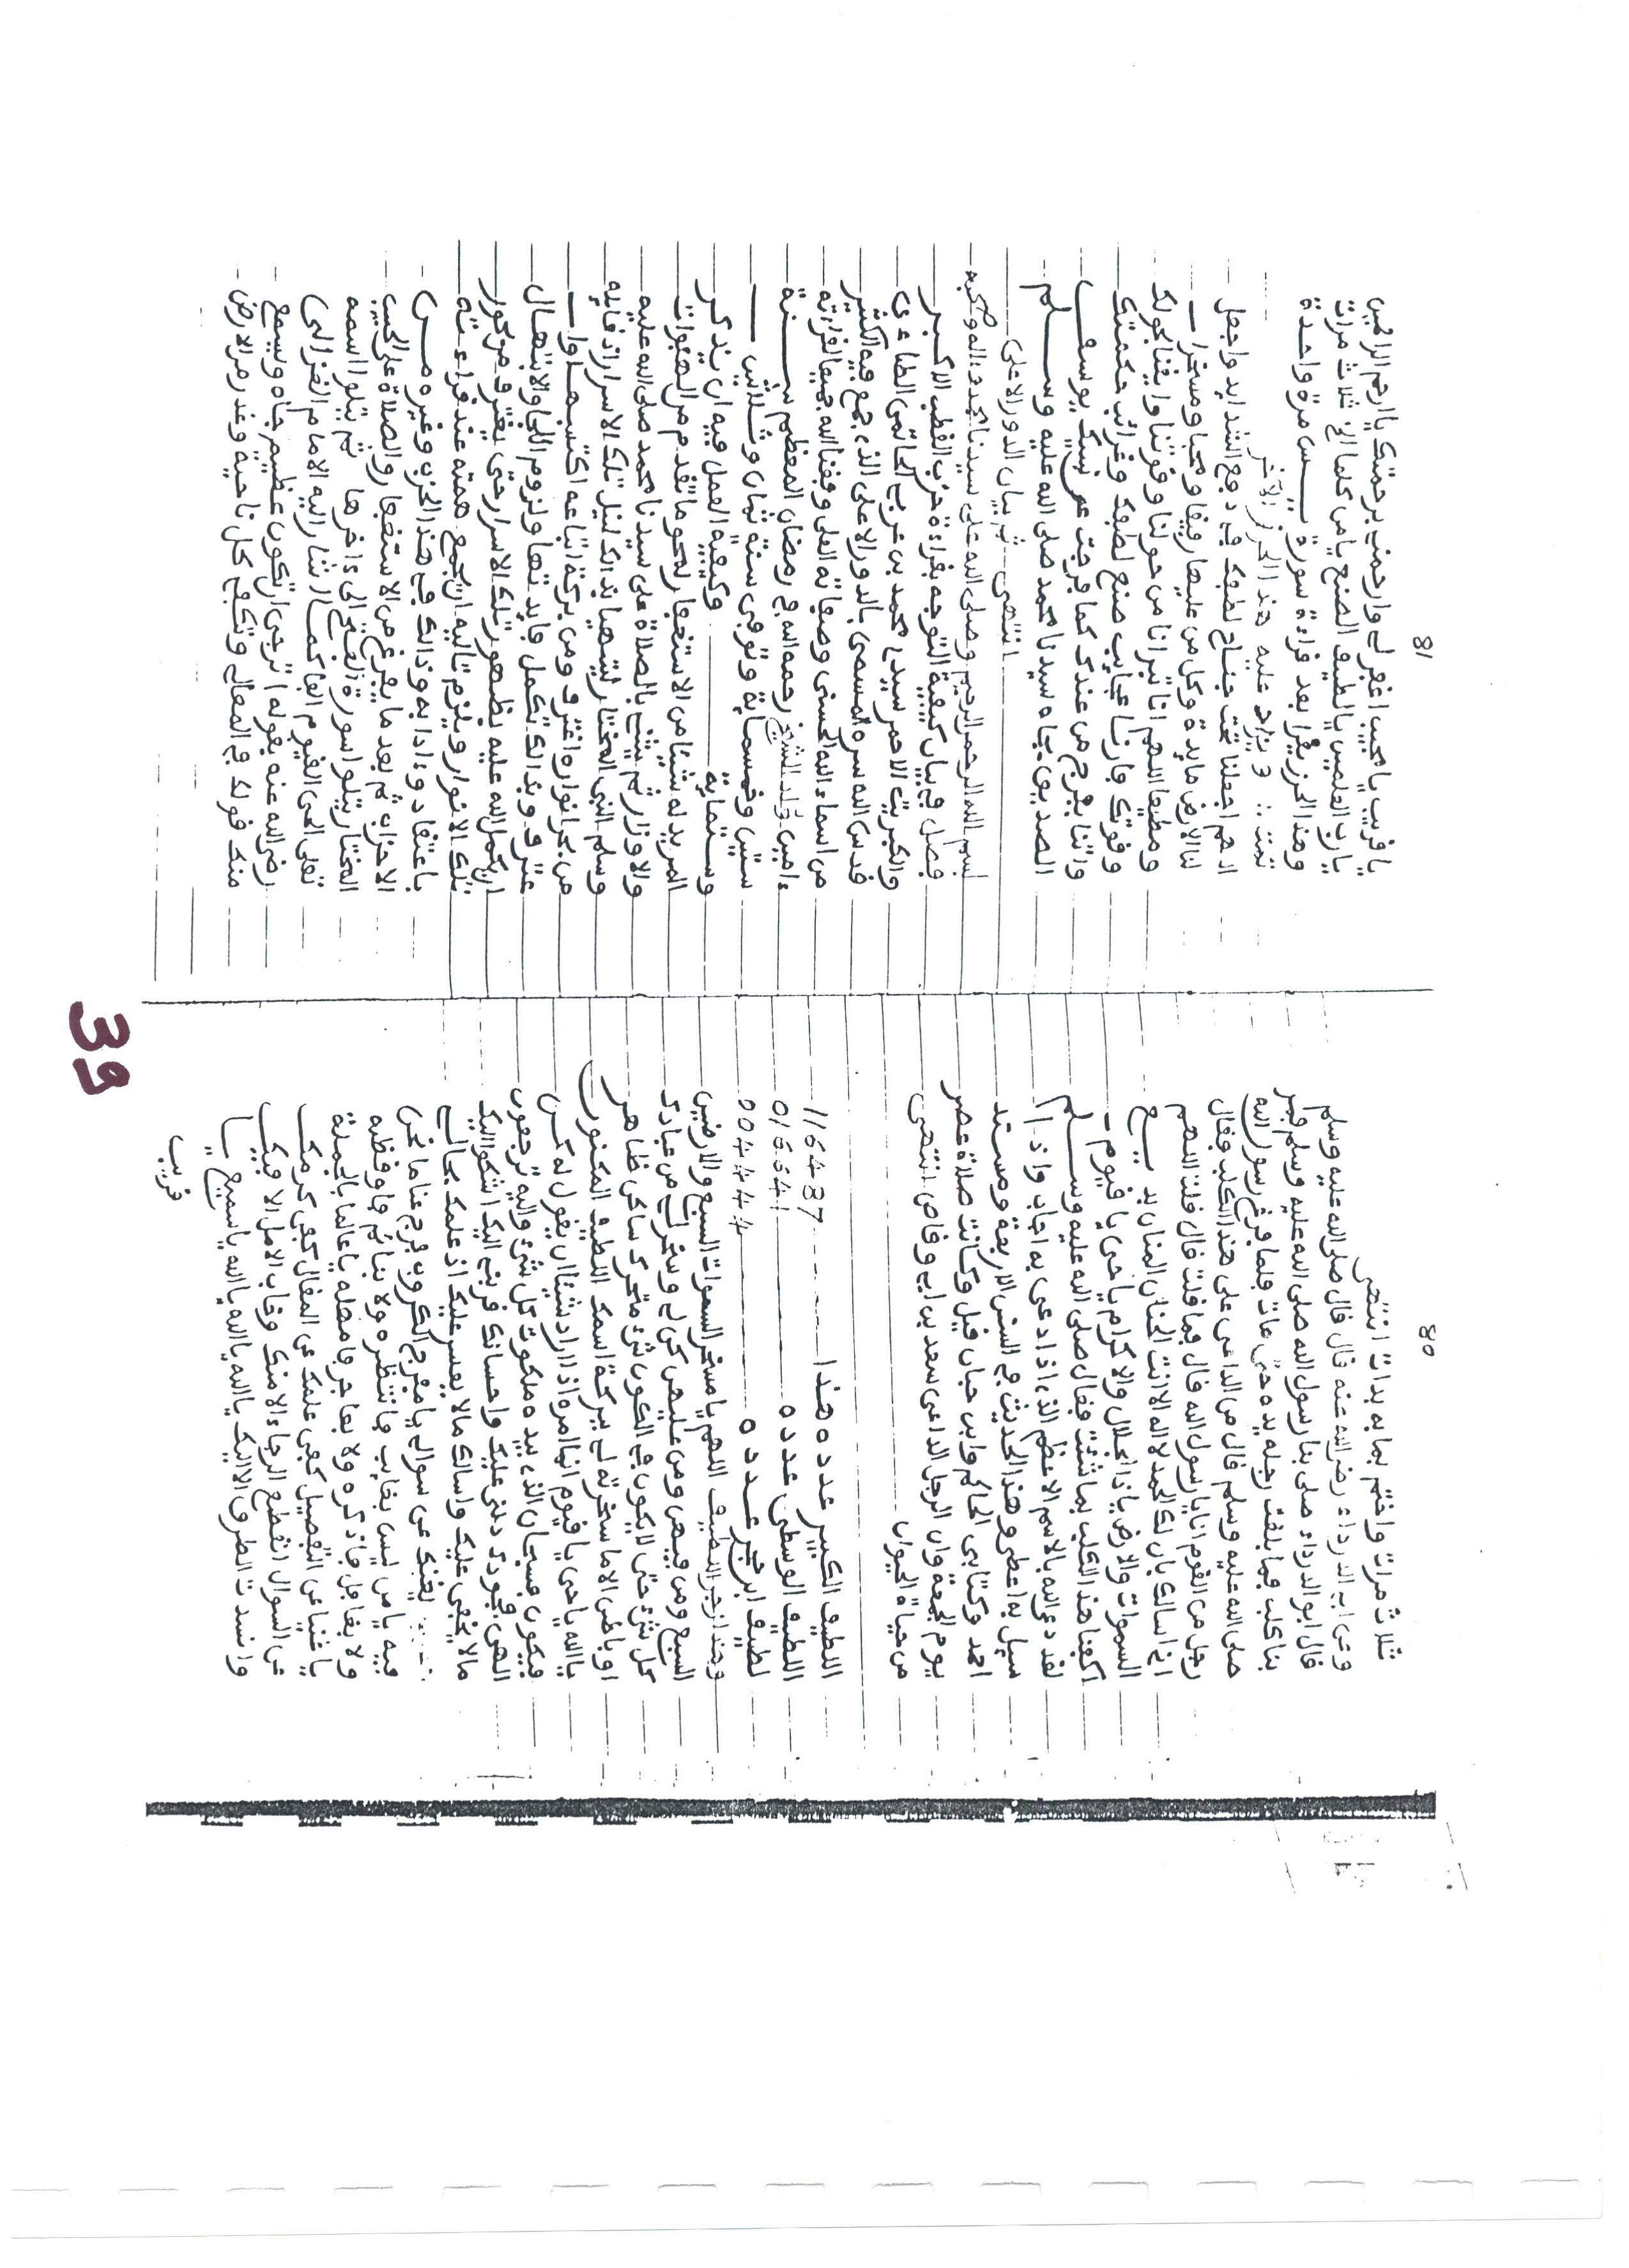 80
ثلاث مرات واختم بما به بدات انتهى
وعن ابي الدرداء رضي الله عنه قال قال صلى الله عليه وسلم
قال ابو الدرداء صلى بنا رسول الله صلى الله عليه وسلم فمر
بنا كلب فما بلغت رجله يده حتى مات فلما فرغ رسول الله
صلى الله عليه وسلم قال من الداعى على هذا الكلب فقال
رجل من القوم انا يا رسول الله قال فما قلت قال قلت اللهم
اني اسالك بان لك الحمد لا اله الا انت الحنان المنان بديـع
السموات والارض يا ذا الجلال والاكرام يا حي يا قيوم
اكفنا هذا الكلب بما شئت فقال صلى الله عليه وسـلم
لقد دعى الله بالاسم الاعظم الذي اذا دعى به اجاب واذا
سيل به اعطى وهذا الحديث في السنن الاربعة ومسند
احمد وكتابى الحاكم وابن حبان قيل وكانت صلاة عصر
يوم الجمعة وان الرجل الداعى سعد بن ابي وقاص انتهى
من حياة الحيوان
اللطيف الكبير عدده هذا 116487
اللطيف الوسطى عدده 016641
لطيف
وهذا زجر اللطيف اللهم يا مسخر السموات السبع والارضين
السبع ومن فيهن ومن عليهن كن لي وسخر لي من عبادك
كل شيء حتى لا يكون في الكون شيء متحرك ساكن ظاهر
او باطن الا ما سخرته لي ببركة اسمك اللطيف المكنون
يا الله يا حي يا قيوم انما امره اذا اراد شيئا ان يقول له كن
فيكون فسبحان الذي بيده ملكوت كل شيء واليه ترجعون
الهى جودك دلني عليك واحسانك قربني اليك اشكوا اليك
ما لا يخفى عليك واسالك ما لا يعسر عليك اذ علمك بحالي
يغنيك عن سوالي يا مفرج الكروب فرج عنا ما نحن
فيه يا من ليس بغايب فانتظره ولا بنائم فاوقظه
ولا بغافل فاذكره ولا بعاجز فامهله يا عالما بالجملة
يا غنيا عن التفصيل كفى علمك عن المقال كفى كرمك
عن السوال انقطع الرجاء الا منك وخاب الامل الا فيك
وانسدت الطرق الا اليك يا الله يا الله يا الله يا سميع يا
قريب
81
يا قريب يا مجيب اغفر لي وارحمني برحمتك يا ارحم الراحمين
يا رب العلمين يا لطيف الصنع يا من كلما الخ ثلاث مرات
وهذا الحزب يقرا بعد قراءة سورة يـس مرة واحدة
تمت :: ويزاد عليه هذا الحزز الآخر
اللهم اجعلنا تحت جناح لطفك في دفع الشدايد واجعل
لنا الارض مايدة وكل من عليها رفيقا ومحبا ومسخرا
ومطيعا اللهم انا تبرانا من حولنا وقوتنا وايقنا بحولك
وقوتك فارنا عجايب صنع لطفك وغرائب حكمتك
واتنا بفرج من عندك كما فرجت عن نبيك يوسف
الصديق بجاه سيدنا محمد صلى الله عليه وسـلم
انتهى ثم بيان الدور الاعلى
بسم الله الرحمن الرحيم وصلى الله على سيدنا محمد واله وصحبه
فصل في بيان كيفية التوجه بقراءة حزب القطب الاكبر
والكبريت الاحمر سيدي محمد بن عربي الحاتمى الطاءى
قدس الله سره المسمى بالدور الاعلى الذي جمع فيه الكثير
من اسماء الله الحسنى وصفاته العلى وفقنا الله جميعا لقراءته
ءامين ولد الشيخ رحمه الله في رمضان المعظم سـنة
ستين وخمسماية وتوفى سنة ثمان وثـلاثين
وستماية وكيفية العمل فيه ان يذكر
المريد له شيئا من الاستغفار لمحو ما تقدم من الهفوات
والاوزار ثم يثني بالصلاة على سيدنا محمد صلى الله عليه
وسلم النبي المختار ليتهيا بذلك لنيل تلك الاسرار اذ فايه
من بحر انواره اغترف ومن بركة اتباعه اكتسب اولـ
عترف وبذالك تكمل فايدتها ولزوم اللجا والابتهال
ان يكمل الله عليه بظهور تلك الاسرار حتى يغترف من كور
تلك الانوار ويلزم تاليه ان يجمع همته عند قراءته
باعتقاد وءاداب وذالك في هذا الحزب وغيره مـن
الاحزاب ثم بعد ما يفرغ من الاستغفار والصلاة على الحبيب
المختار يتلوا سورة الضحى الى ءاخرها ثم يتلوا اسمه
تعلى الحي القيوم الفا كمـا اشار اليه الامام الغزالى
رضي الله عنه بقوله اترجى ان تكون عظيم جاه وسيمع
منك قولك في المعالي وتكفى كل ناحية وغدر من الارض
39